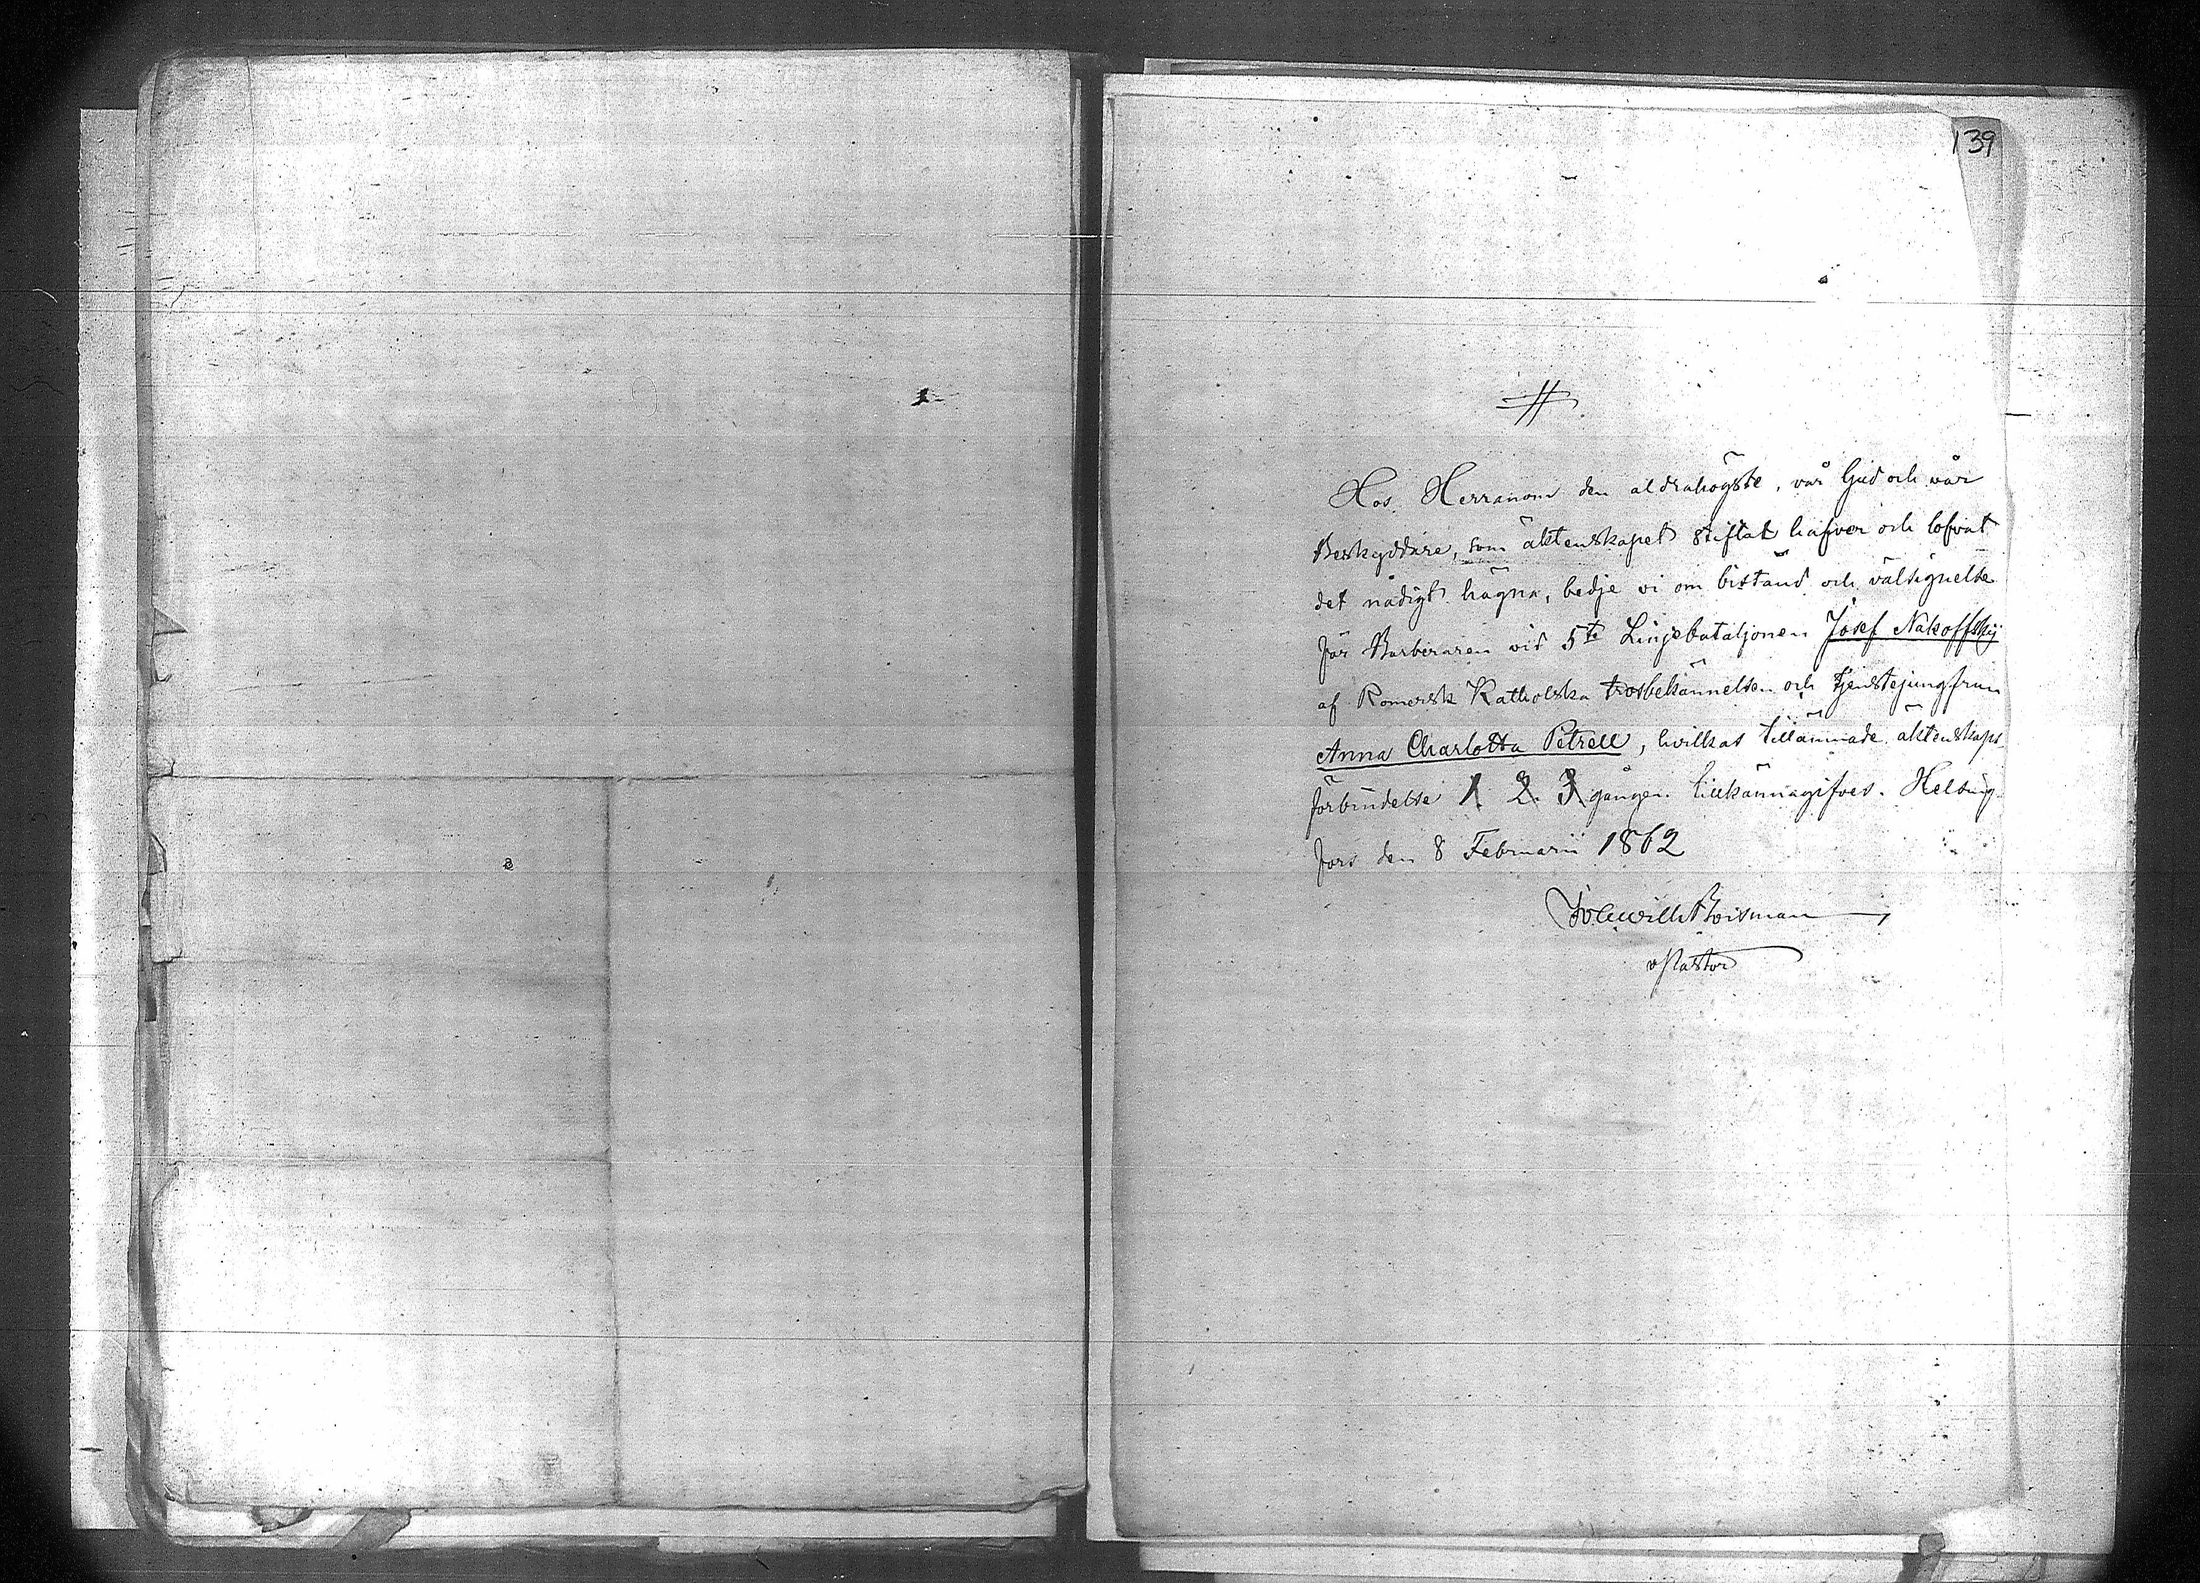 139
Hos Herranom den aldrahögste, vår Gud och vår
Beskyddare, som äktenskapet stiftat hafver och lofvat
det nådigt hägna, bedje vi om bistånd och välsignelse
för Barberaren vid 5te Linjebataljonen Josef Nakoffskij
af Romersk Katholska trosbekännelsen och tjenstejungfrun
Anna Charlotta Petrell, hvilkas tillämnade äktenskaps-
förbindelse 1 2 3 gången tillkännagifves. Helsing-
fors den 8 Februarii 1862
Boisman
v Pastor